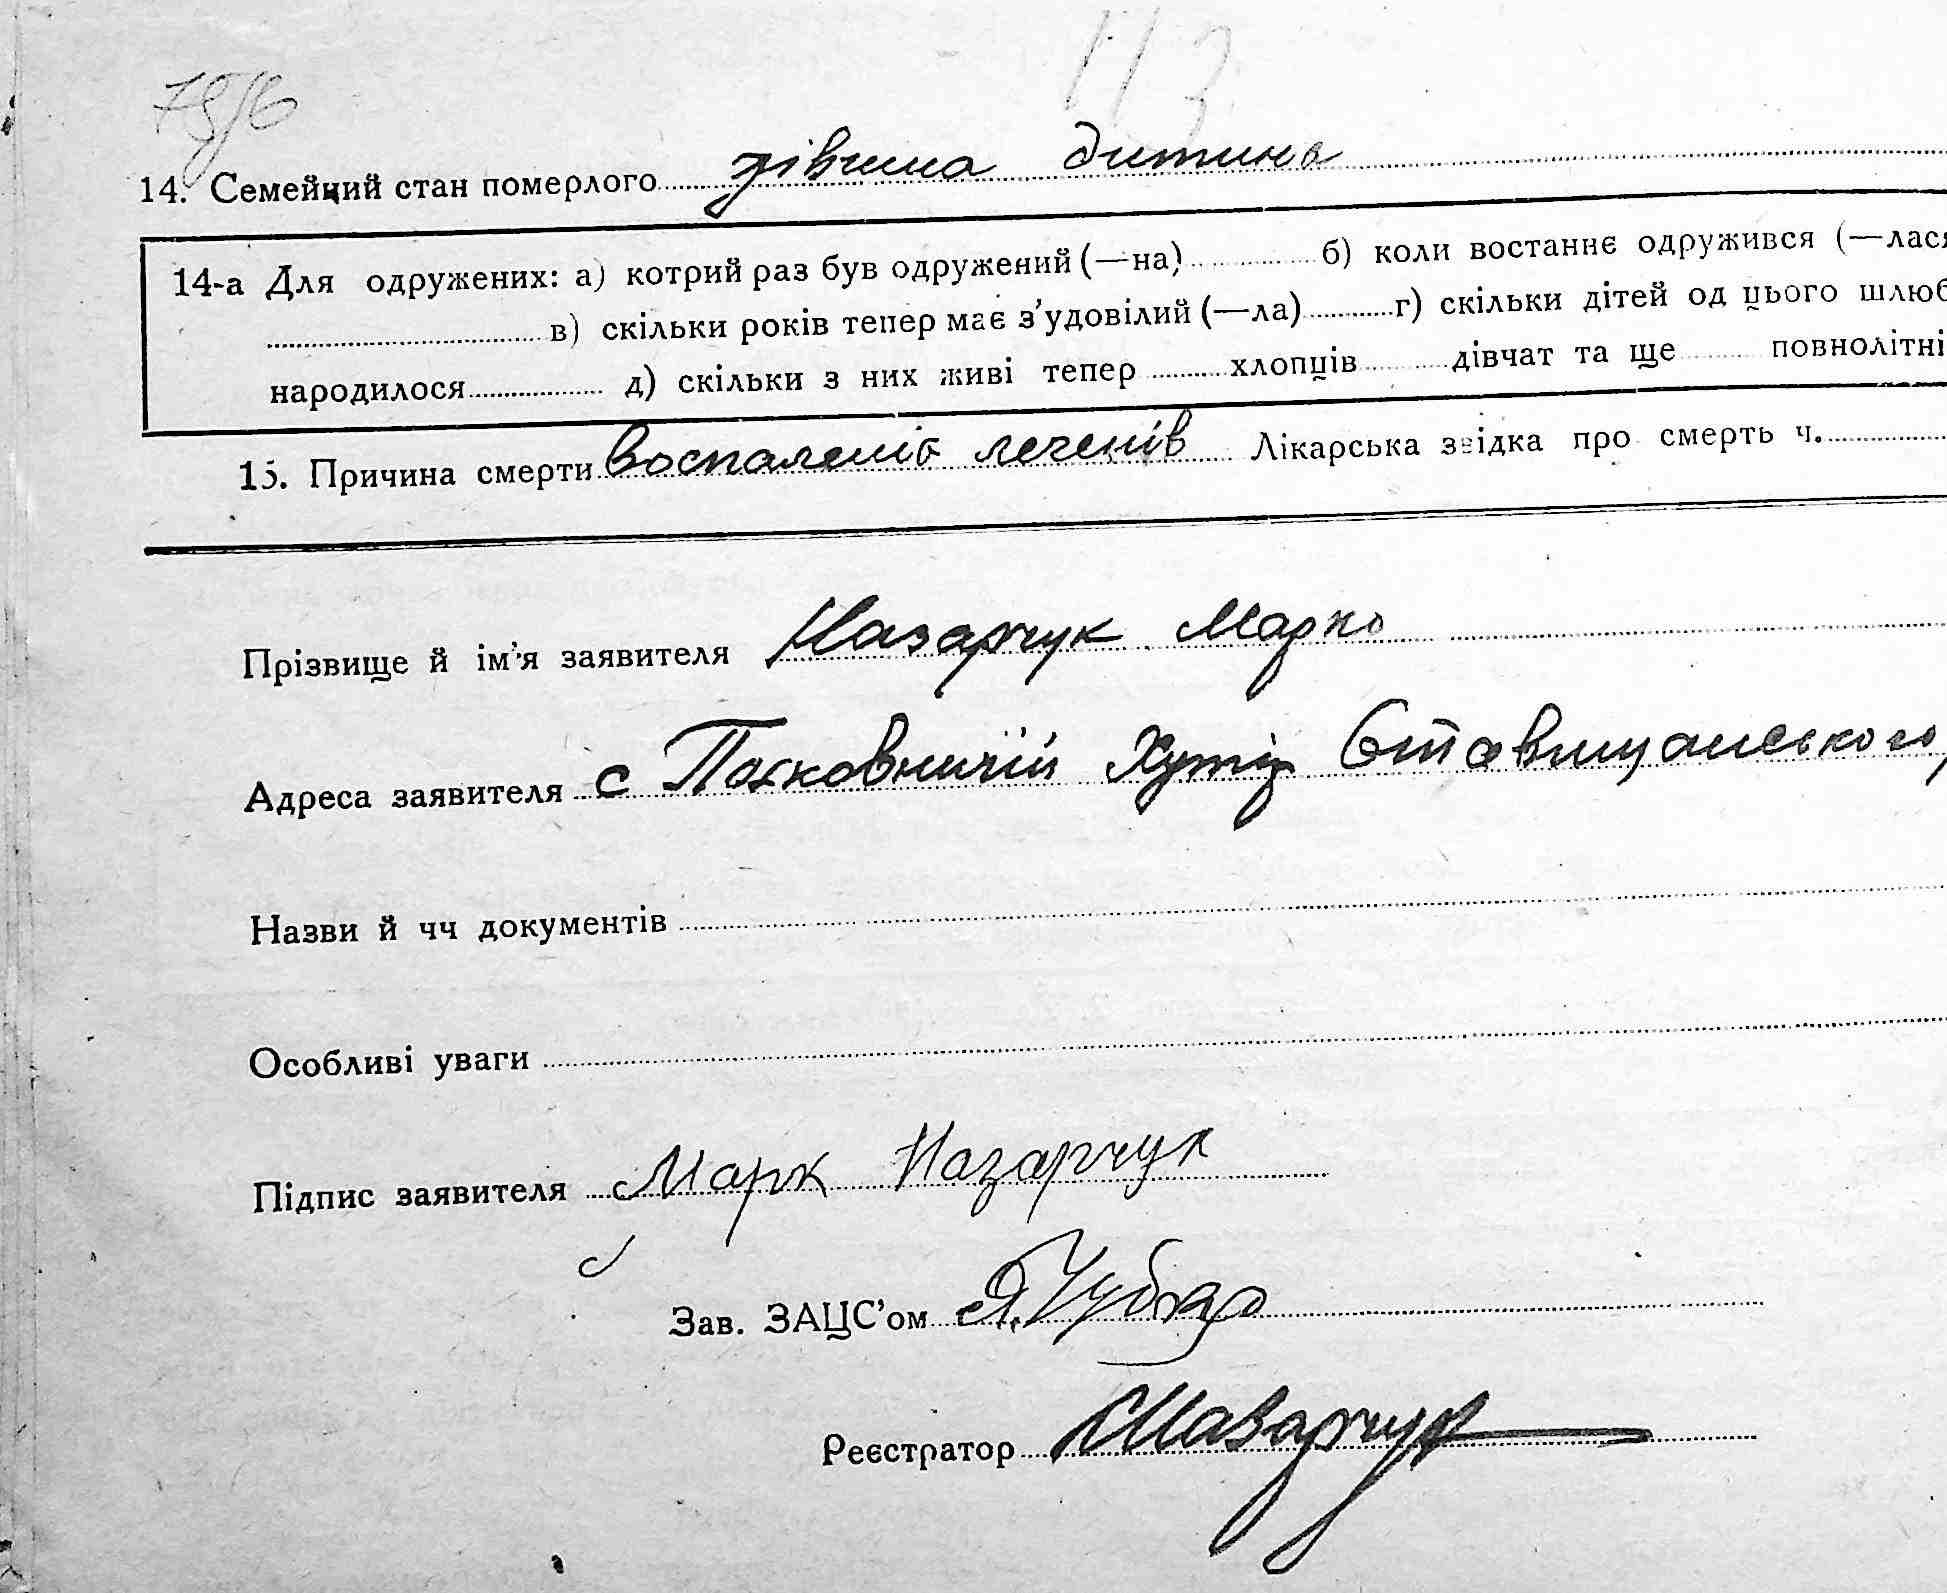 113
14. Семейний стан померлого дівчина дитина
14-а Для одружених: а) котрий раз був одружений (—на) б) коли востаннє одружився (—лася
в) скільки років тепер має з'удовілий (—ла) г) скільки дітей од цього шлюб
народилося д) скільки з них живі тепер хлопців дівчат та ще повнолітні
15. Причина смерти воспаленія легенів Лікарська звідка про смерть ч.
Прізвище й ім'я заявителя Назарчук Марко
Адреса заявителя с Полковничій Хутір Ставищанського
Назви й чч документів
Особливі уваги
Підпис заявителя Марк Назарчук
Зав. ЗАЦС'ом
Реєстратор Назарчук